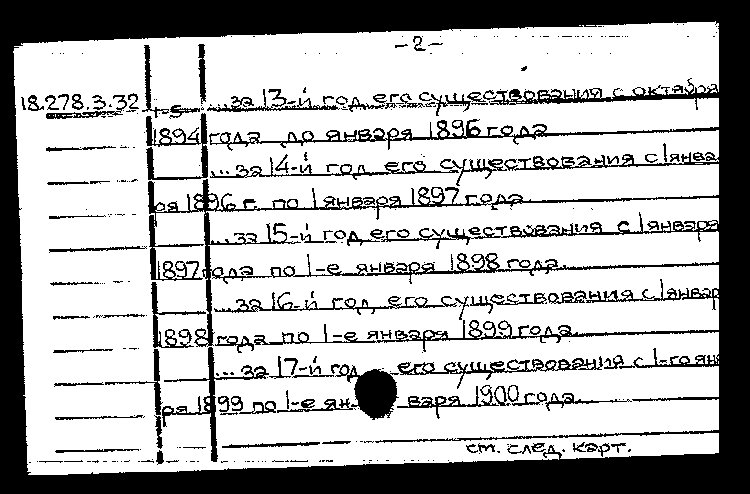 -2-
18.278.3.32 1-5 ...за 13-й год его существования с октября
1894 года до января 1896 года
...за 14-й год его существования с 1 янва-
ря 1896 г. по 1 января 1897 года
...за 15-й год его существования с 1 января
1897 года по 1-е января 1898 года.
...за 16-й год его существования с 1 январ
1898 года по 1-е января 1899 года.
...за 17-й год его существования с 1-го ян
ря 1899 по 1-е января 1900 года.
см. след. карт.